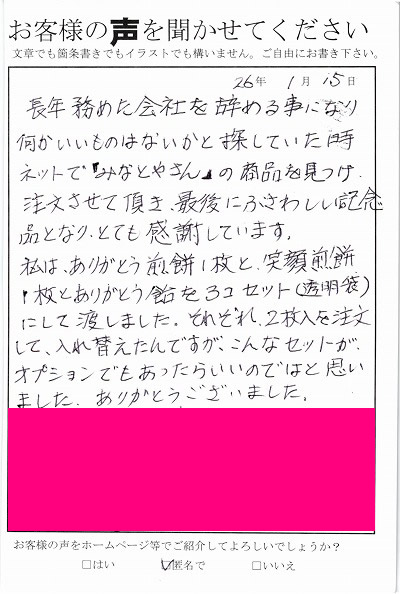 お客様の声を聞かせてください
文章でも箇条書きでもイラストでも構いません。ご自由にお書き下さい。
26年 1月 15日
長年務めた会社を辞める事になり
何かいいものはないかと探していた時
ネットで『みなとやさん』の商品を見つけ
注文させて頂き、最後にふさわしい記念
品となり、とても感謝しています。
私は、ありがとう煎餅1枚と、笑顔煎餅
1枚とありがとう飴を3コセット(透明袋)
にして渡しました。それぞれ、2枚入を注文
して、入れ替えたんですが、こんなセットが、
オプションでもあったらいいのではと思い
ました。ありがとうございました。
お客様の声をホームページ等でご紹介してよろしいでしょうか?
□はい ☑匿名で □いいえ